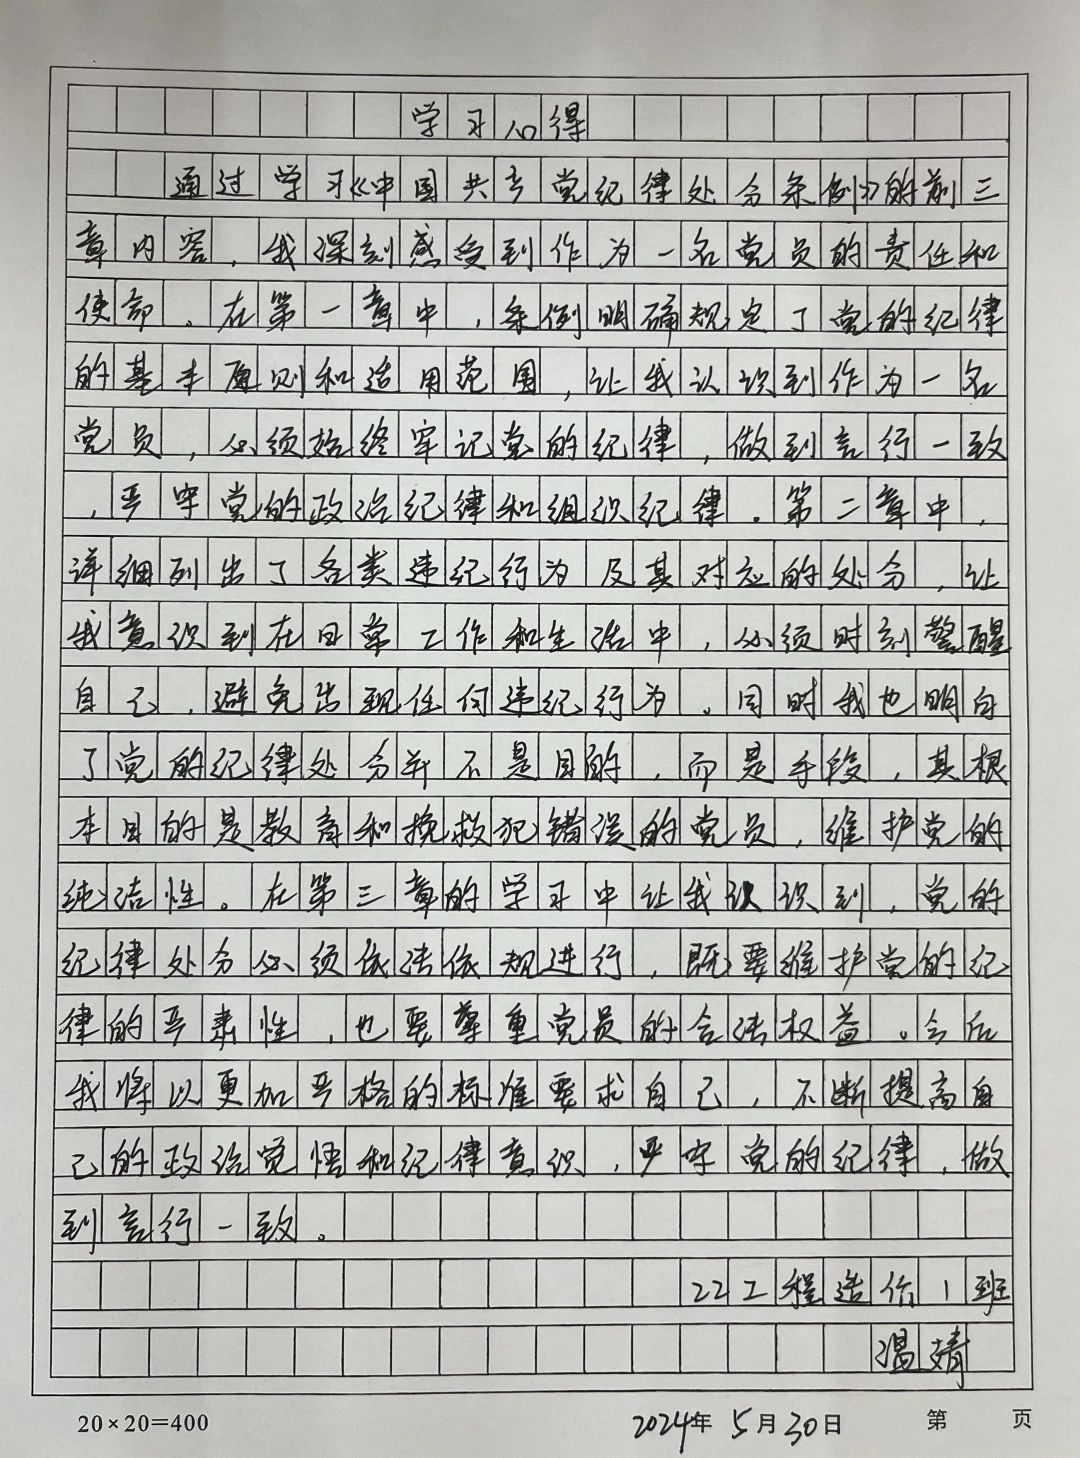 学习心得
通过学习《中国共产党纪律处分条例》的前三
章内容，我深刻感受到作为一名党员的责任和
使命。在第一章中，条例明确规定了党的纪律
的基本原则和适用范围，让我认识到作为一名
党员，必须始终牢记党的纪律，做到言行一致
，严守党的政治纪律和组织纪律。第二章中，
详细列出了各类违纪行为及其对应的处分，让
我意识到在日常工作和生活中，必须时刻警醒
自己，避免出现任何违纪行为。同时我也明白
了党的纪律处分并不是目的，而是手段，其根
本目的是教育和挽救犯错误的党员，维护党的
纯洁性。在第三章的学习中让我认识到，党的
纪律处分必须依法依规进行，既要维护党的纪
律的严肃性，也要尊重党员的合法权益。今后
我将以更加严格的标准要求自己，不断提高自
己的政治觉悟和纪律意识，严守党的纪律，做
到言行一致。
22工程造价1班
温婧
20×20=400 2024年5月30日 第 页